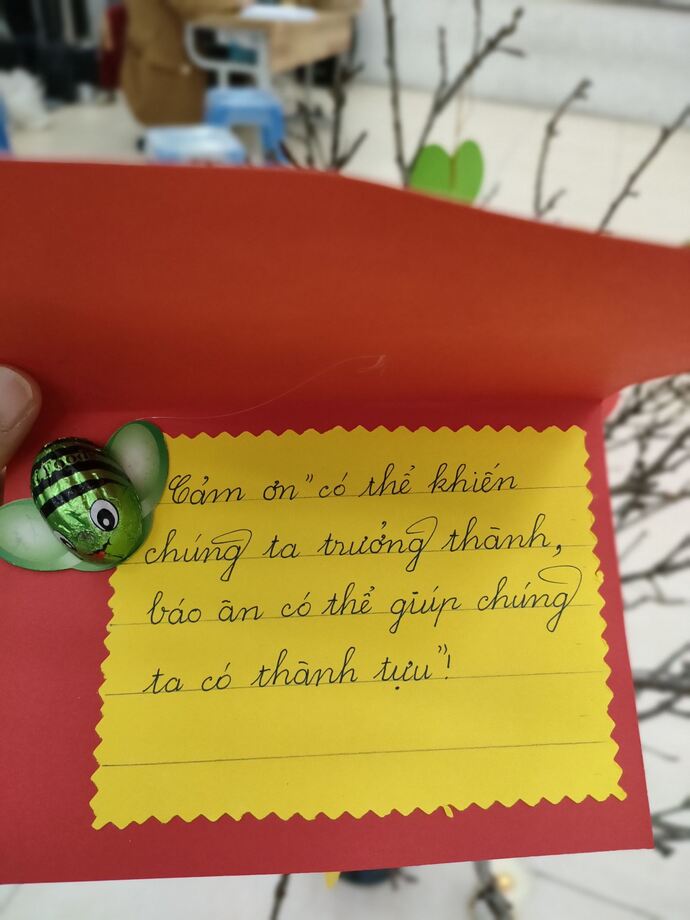 Cảm ơn" có thể khiến
chúng ta trưởng thành,
báo ân có thể giúp chúng
ta có thành tựu"!